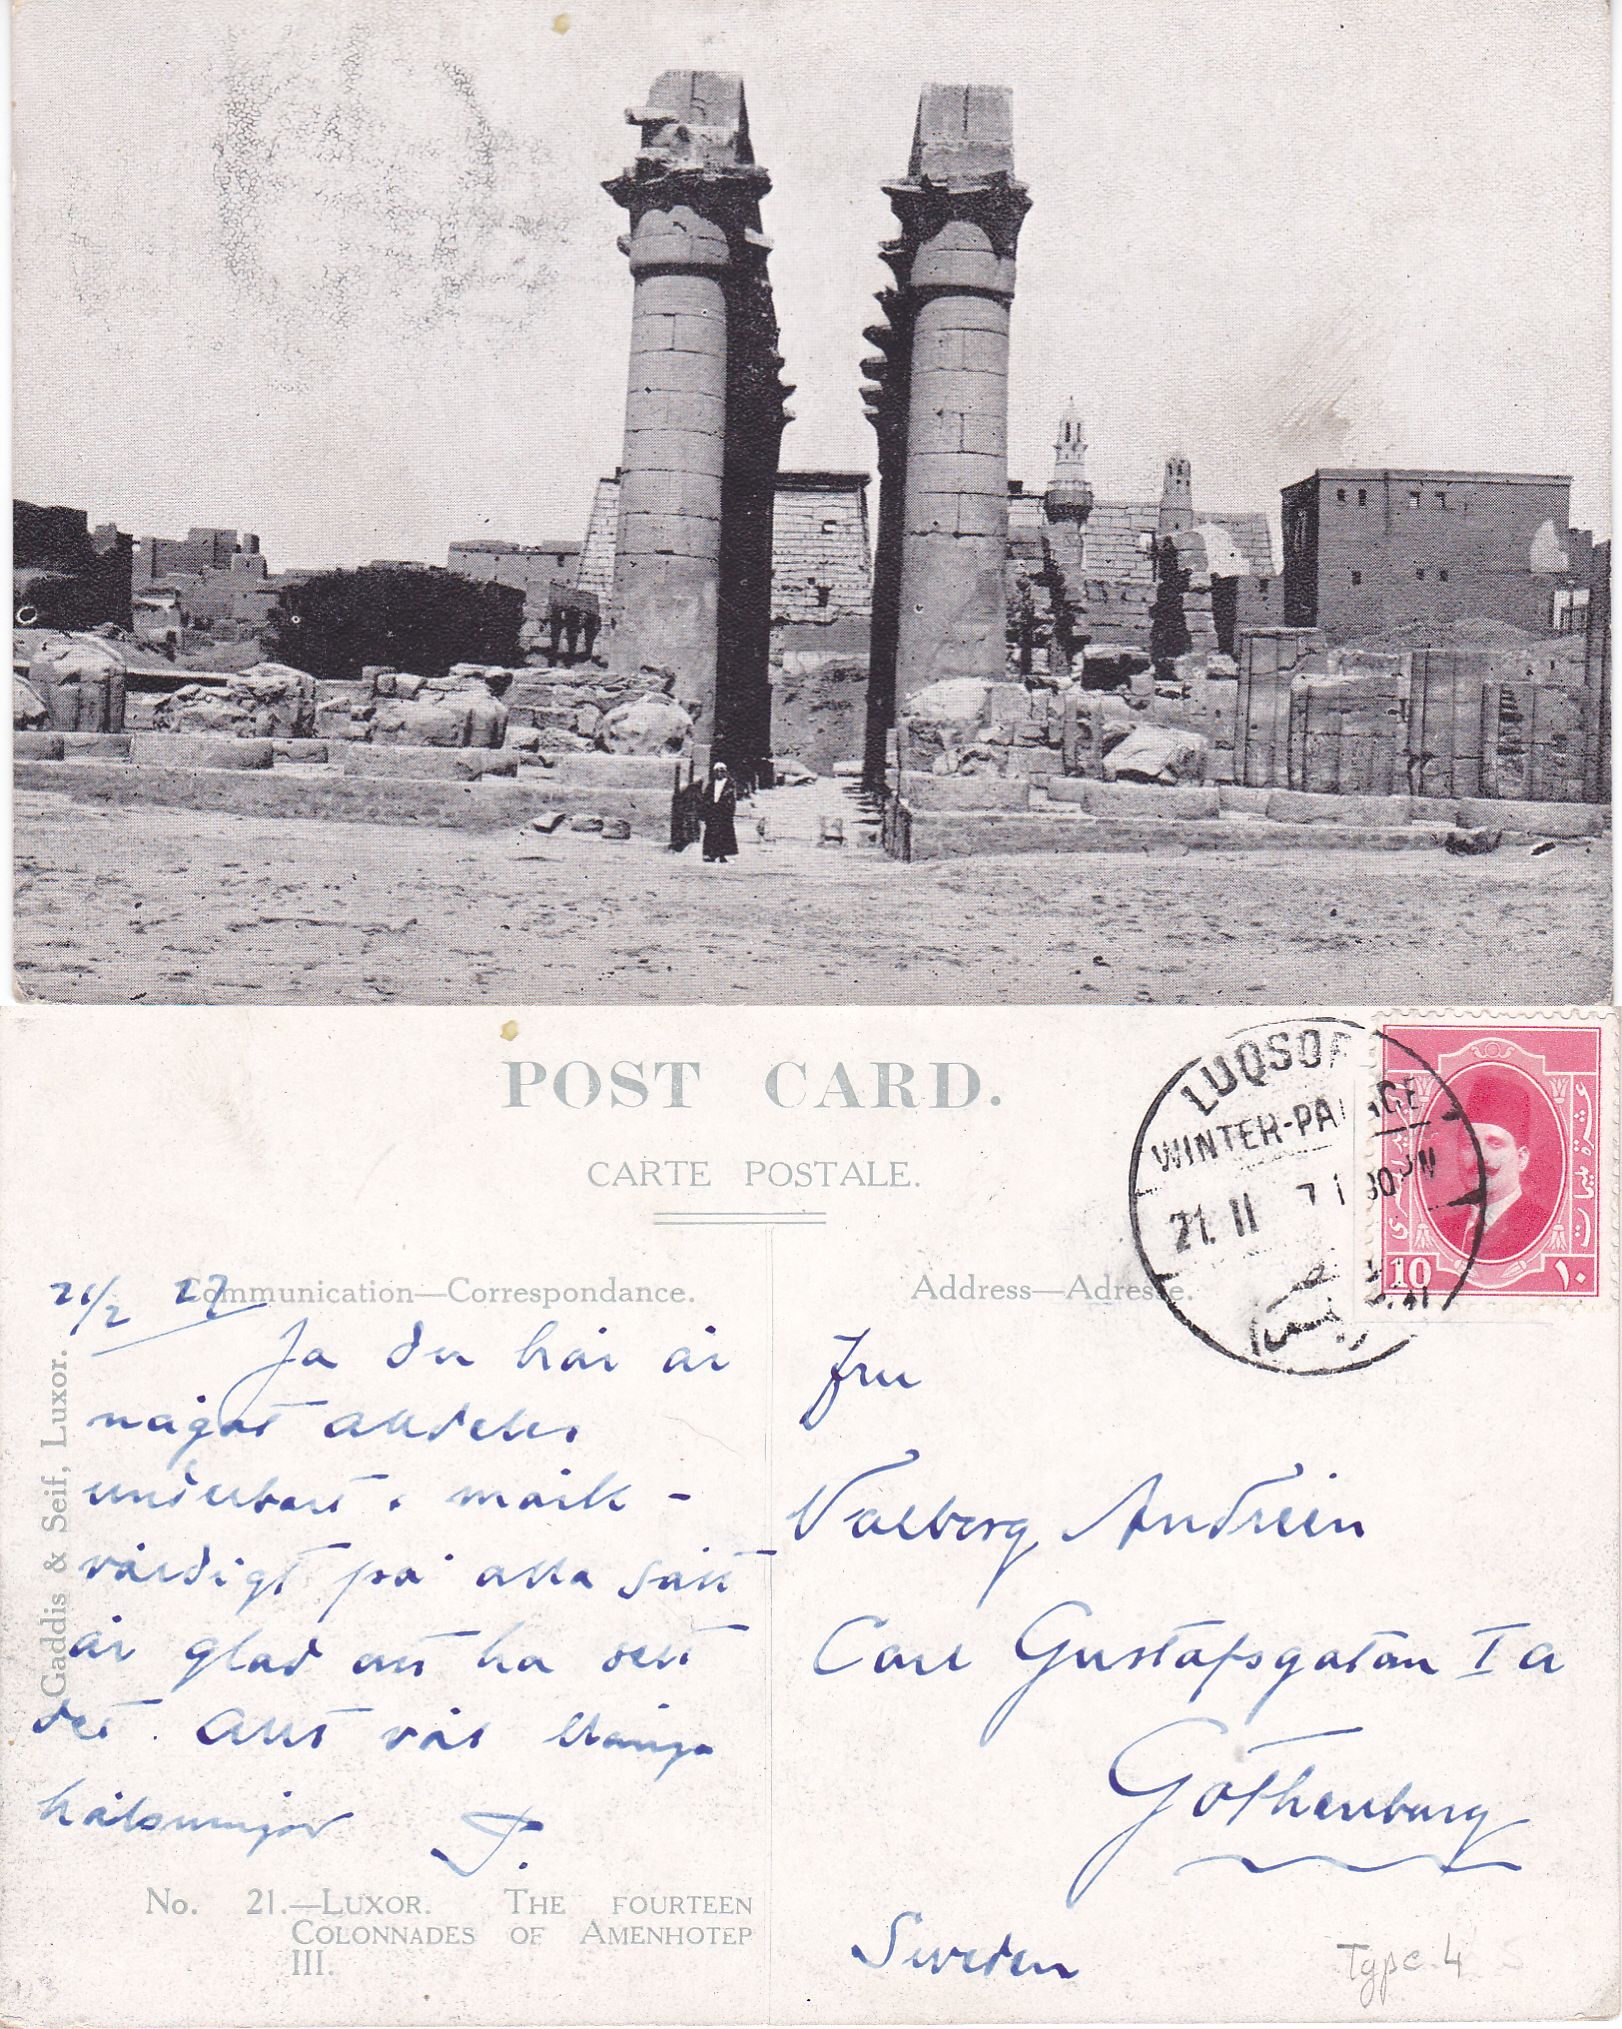 POST CARD.
CARTE POSTALE.
LUQSOR
WINTER-PALACE
21. II 30 PM
10
١٠
Communication—Correspondence.
Address—Adresse.
21/2 27
Ja du här är
något alldeles
underbart o märk-
värdigt på alla sätt
är glad att ha sett
det. Allt väl många
hälsningar J.
Gaddis & Seif, Luxor.
No. 21.—LUXOR. THE FOURTEEN
COLONNADES OF AMENHOTEP
III.
Fru
Valborg Andréen
Carl Gustafsgatan I a
Gothenburg
Sweden
Type 4